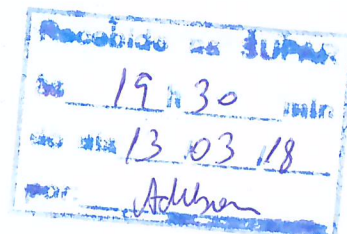 Recebido na SUPAR
às 19 h 30 min
do dia 13 03 18
por: